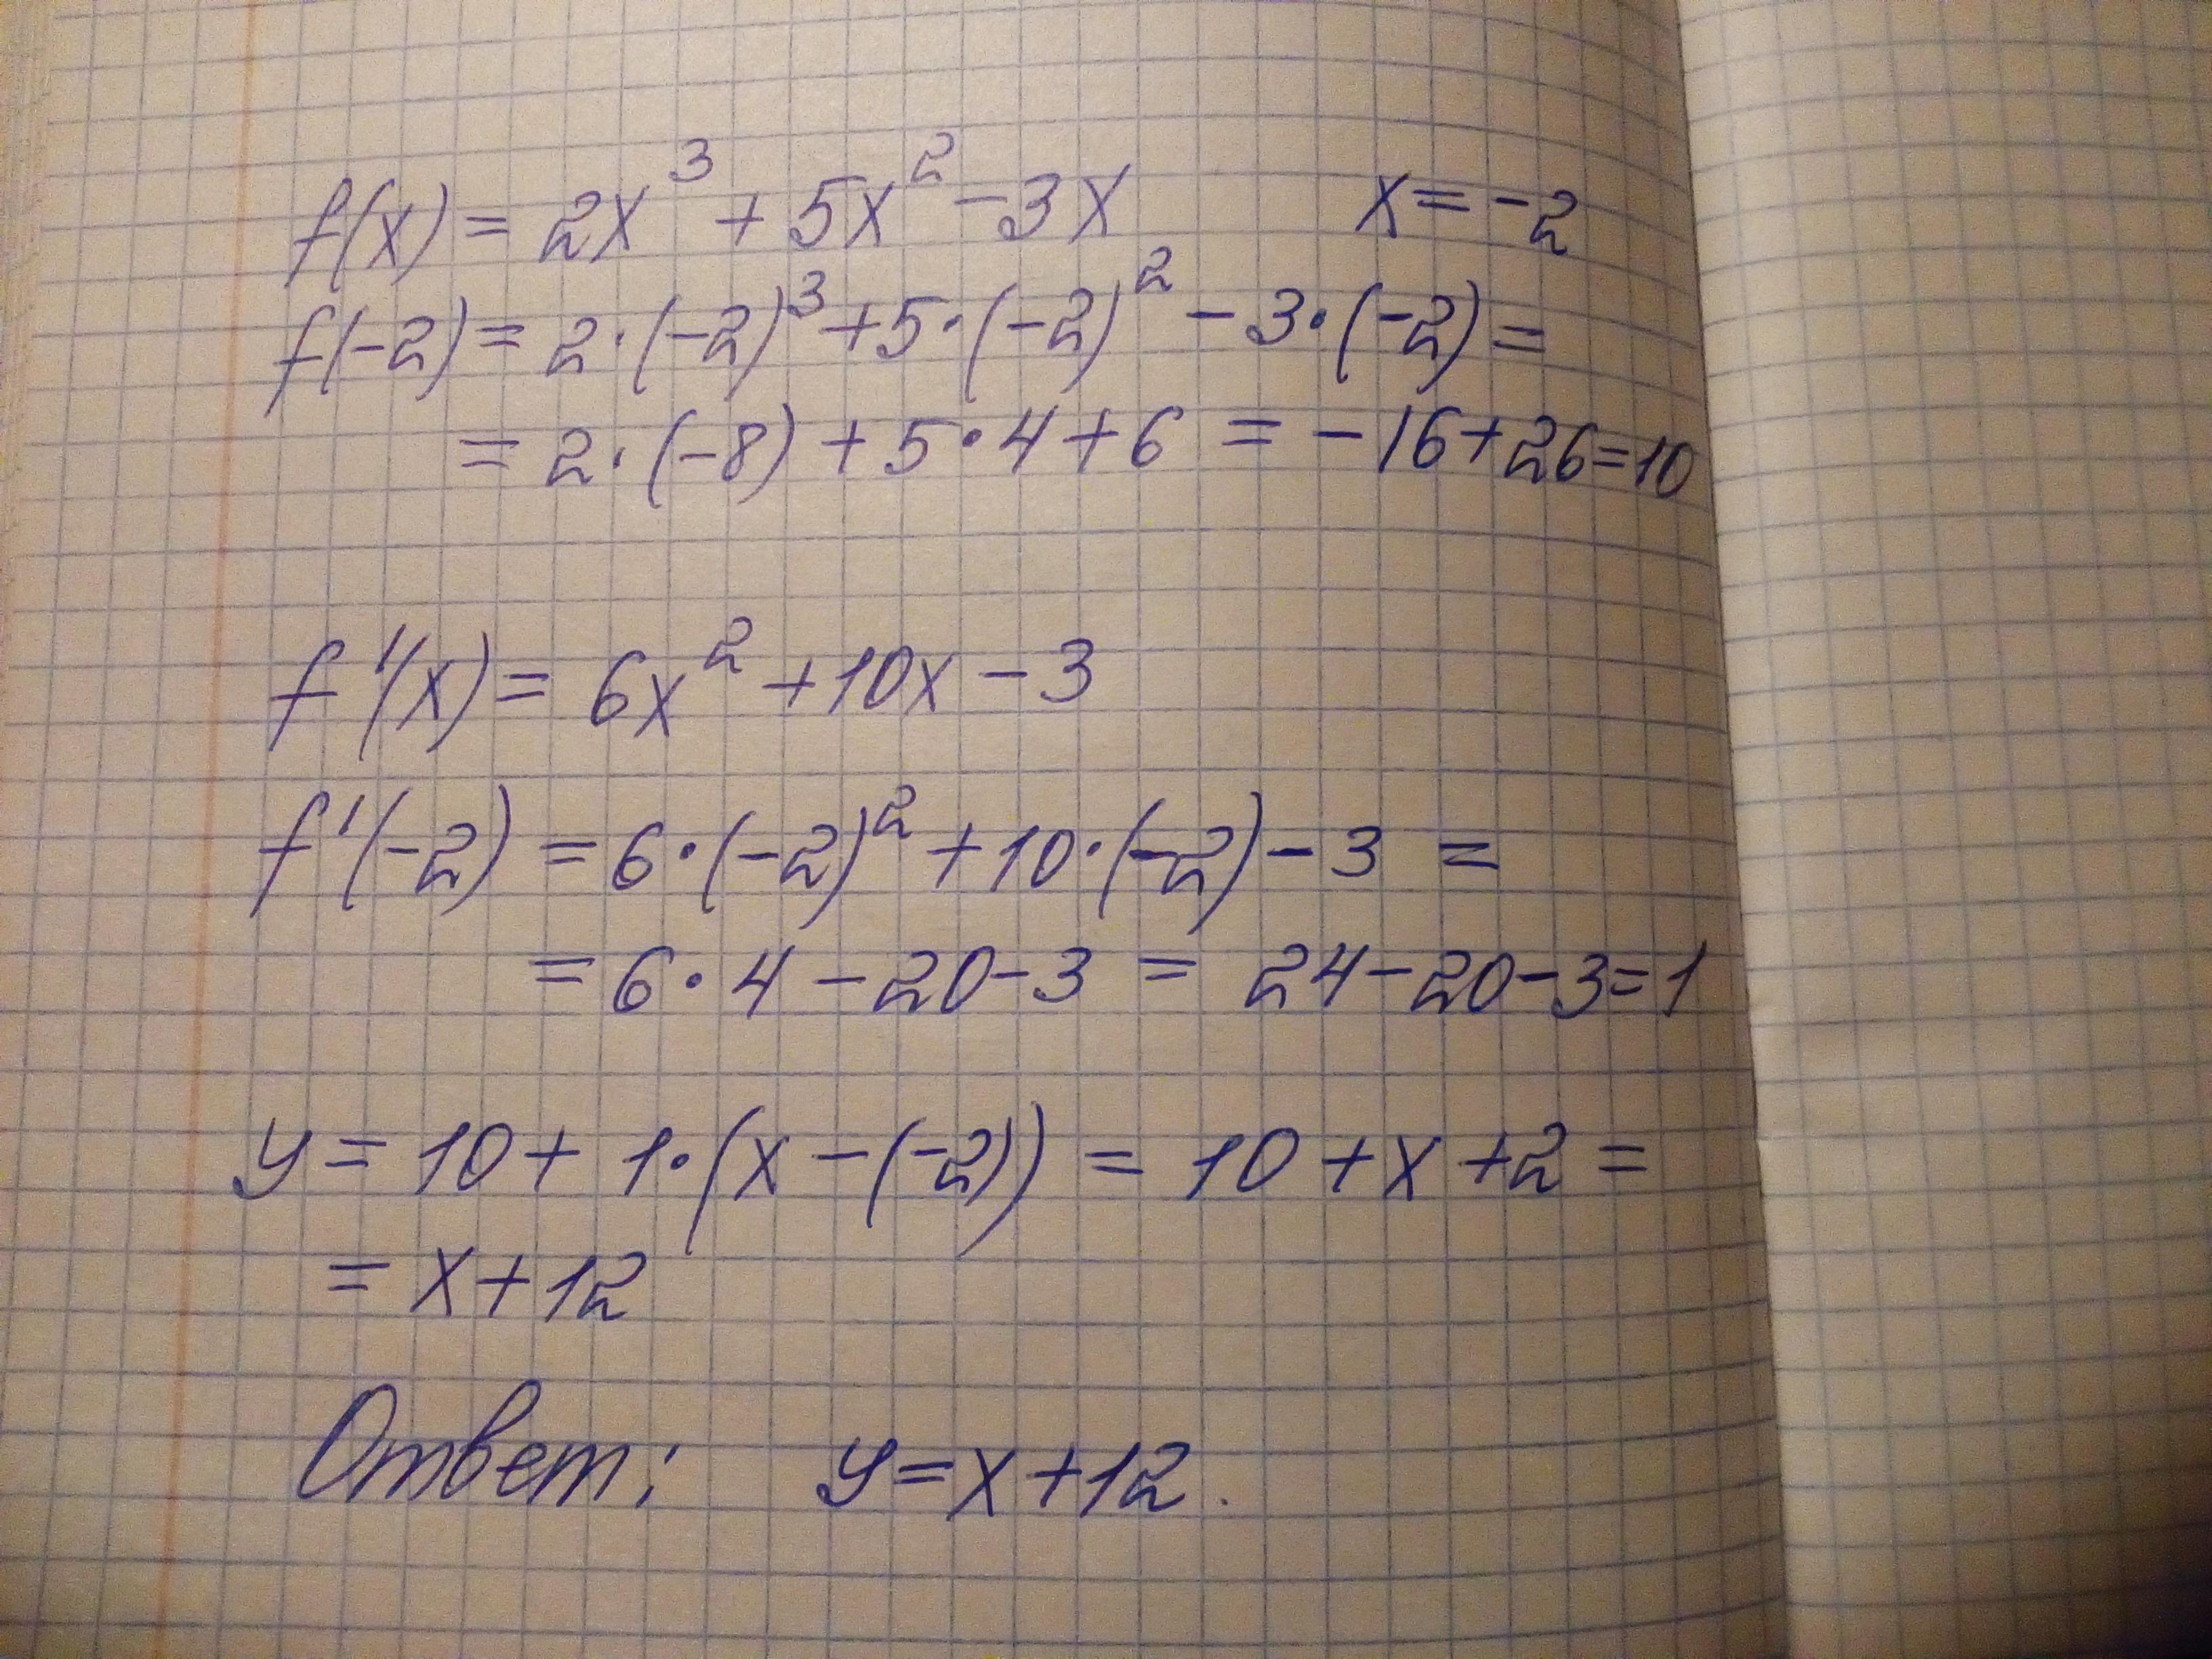 f(x) = 2x³ + 5x² - 3x x = -2
f(-2) = 2·(-2)³ + 5·(-2)² - 3·(-2) =
= 2·(-8) + 5·4 + 6 = -16 + 26 = 10
f'(x) = 6x² + 10x - 3
f'(-2) = 6·(-2)² + 10·(-2) - 3 =
= 6·4 - 20 - 3 = 24 - 20 - 3 = 1
y = 10 + 1·(x - (-2)) = 10 + x + 2 =
= x + 12
Ответ: y = x + 12.